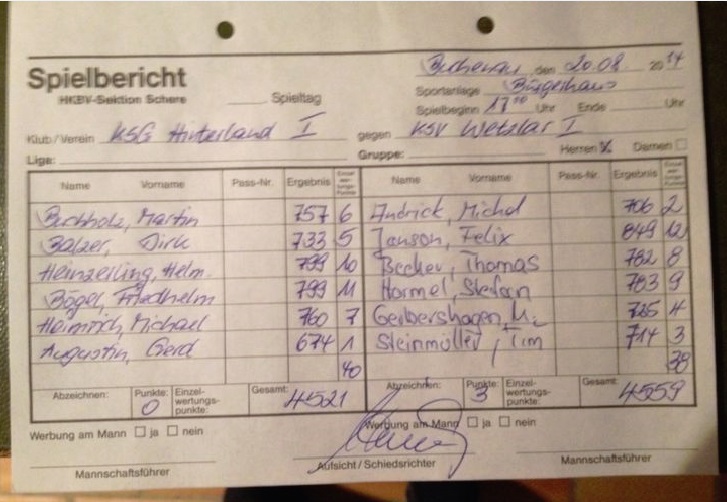 Spielbericht
HKBV-Sektion Schere
Buchenau den 20.08. 2014
Sportanlage Bürgerhaus
Spieltag Spielbeginn 17⁰⁰ Uhr Ende Uhr
Klub / Verein KSG Hinterland I gegen KSV Wetzlar I
Liga: Gruppe: Herren ☒ Damen ☐
Name Vorname Pass-Nr. Ergebnis Einzelwertungs-Punkte Name Vorname Pass-Nr. Ergebnis Einzelwertungs-Punkte
Buchholz, Martin 757 6 Andrick, Michel 706 2
Balzer, Dirk 733 5 Janson, Felix 849 12
Heinzerling, Helm. 798 10 Becker, Thomas 782 8
Bögel, Friedhelm 799 11 Hormel, Stefan 783 9
Heimrich, Michael 760 7 Gerbershagen, Mi 725 4
Augustin, Gerd 674 1 Steinmüller, Tim 714 3
40 38
Abzeichen: Punkte: 0 Einzelwertungspunkte: Gesamt: 4521 Abzeichen: Punkte: 3 Einzelwertungspunkte: Gesamt: 4559
Werbung am Mann ☐ ja ☐ nein Werbung am Mann ☐ ja ☐ nein
Mannschaftsführer Aufsicht / Schiedsrichter Mannschaftsführer